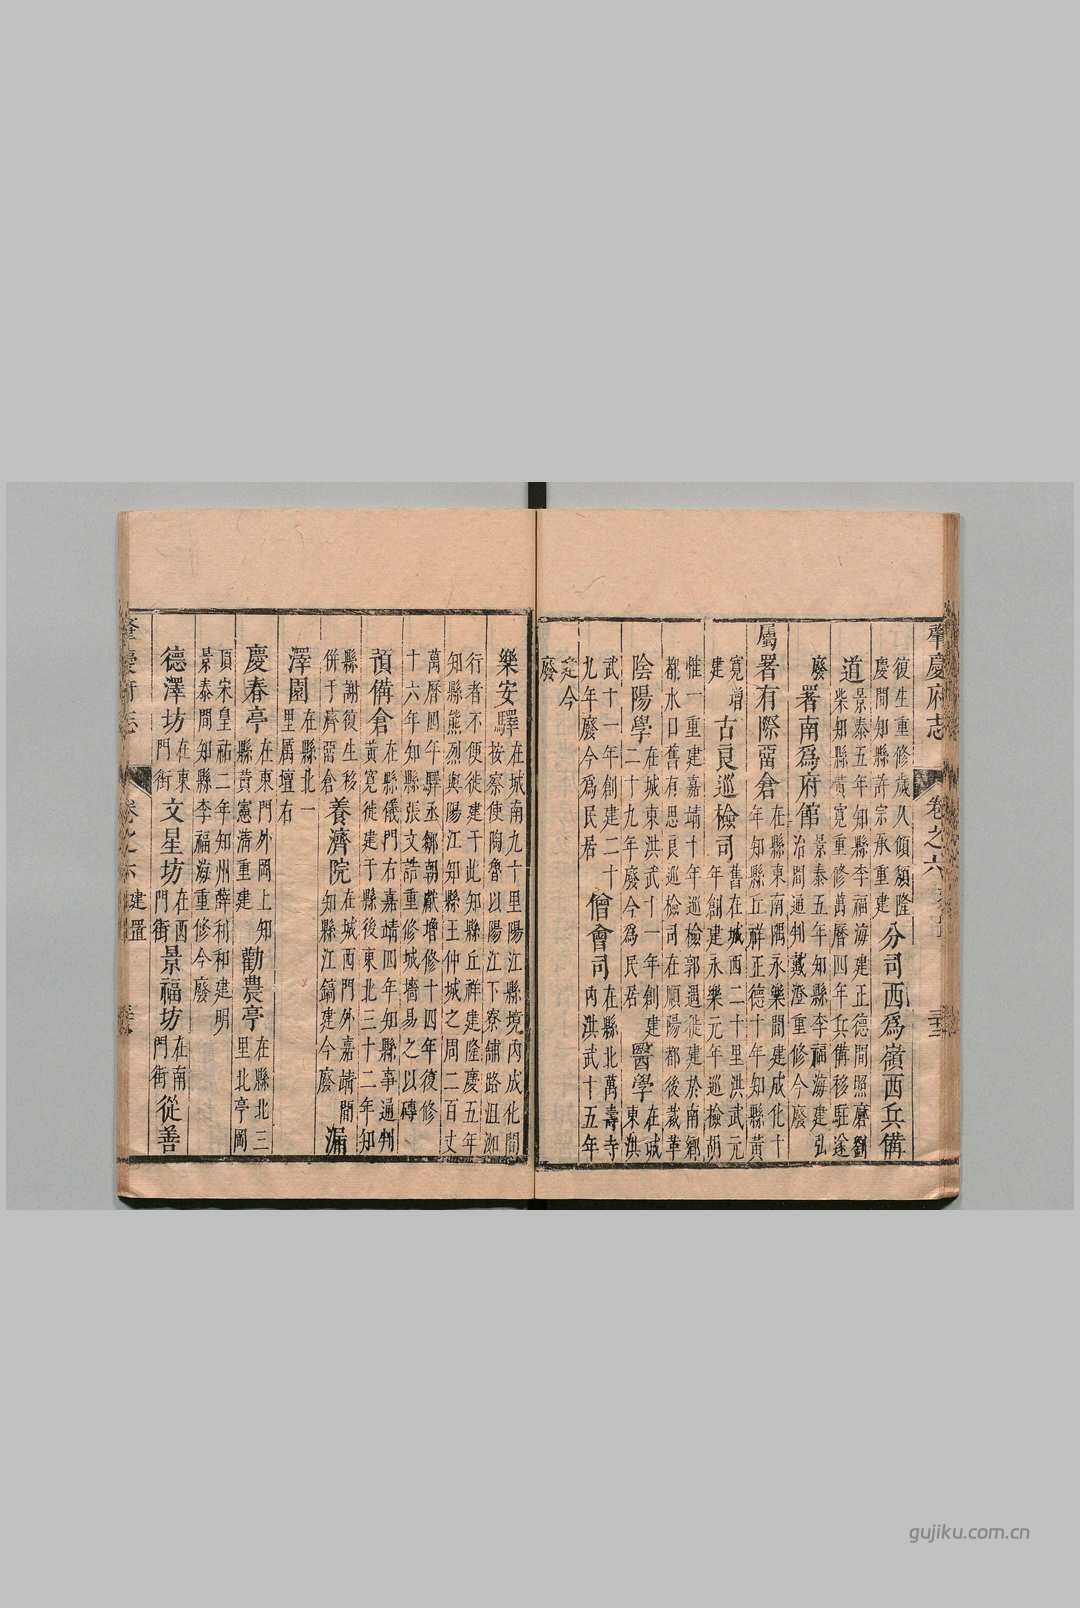 肇慶府志 卷之六
復生重修歲久傾頹隆慶間知縣許宗承重建分司西爲嶺西兵備
道景泰五年知縣李福海建正德間照磨劉柴知縣黃寬重修萬曆四年兵備移駐遂
廢署南爲府館景泰五年知縣李福海建弘治間通判戴澄重修今廢
屬署有際留倉在縣東南隅永樂間建成化十年知縣丘祥正德十年知縣黃
寬增建古良巡檢司舊在城西二十里洪武元年創建永樂元年巡檢荊
惟一重建嘉靖十年巡檢郭遇徙建於南鄉都水口舊有思良巡檢司在順陽都後裁革
陰陽學在城東洪武十一年創建二十九年廢今爲民居醫學在城東洪
武十一年創建二十九年廢今爲民居僧會司在縣北萬壽寺内洪武十五年
建今廢
樂安驛在城南九十里陽江縣境内成化間按察使陶魯以陽江下寮舖路沮洳
行者不便徙建于此知縣丘祥建隆慶五年知縣熊烈與陽江知縣王仲城之周二百丈
萬曆四年驛丞鄒朝獻增修十四年復修十六年知縣張文誥重修城墻易之以磚
預備倉在縣儀門右嘉靖四年知縣事通判黃寬徙建于縣後東北三十二年知
縣謝復生移併于濟留倉養濟院在城西門外嘉靖間知縣江鎬建今廢漏
澤園在縣北一里厲壇右
慶春亭在東門外岡上知縣黃憲清重建勸農亭在縣北三里北亭岡
頂宋皇祐二年知州薛利和建明景泰間知縣李福海重修今廢
德澤坊在東門街文星坊在西門街景福坊在南門街從善
肇慶府志 卷之六 建置
gujiku.com.cn